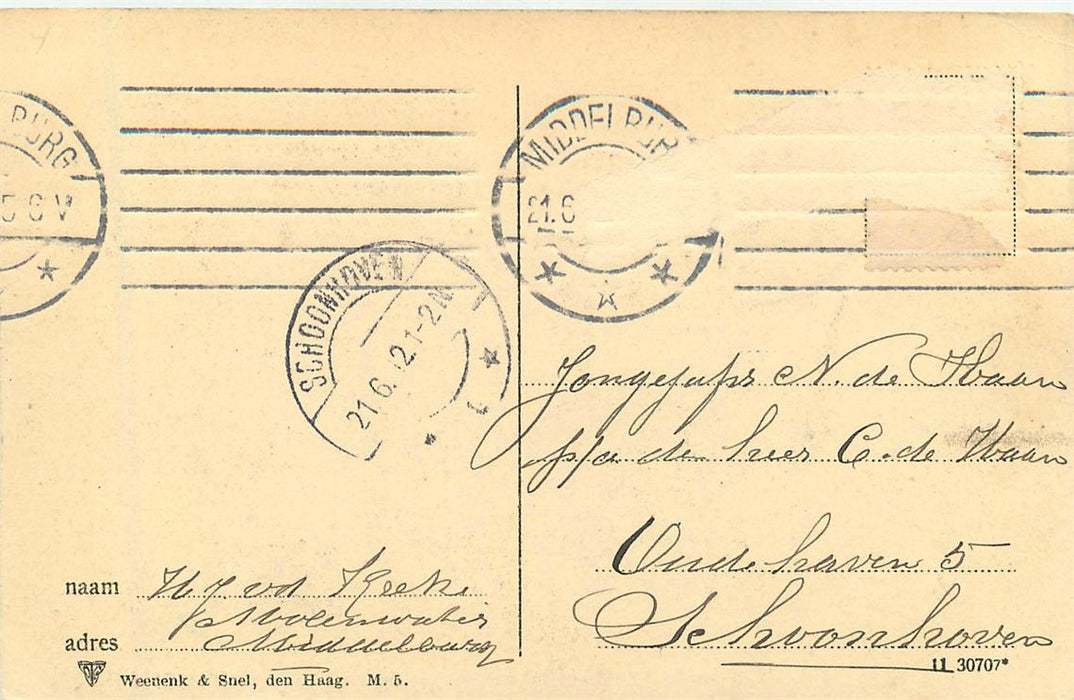 BURG
5 6 V
MIDDELBUR
21.6
SCHOONHOVEN
21 6. 12.1-2N
Jongejufr N. de Haan
p/a den heer C. de Haan
Oude haven 5
Schoonhoven
naam H J vd
Molenwater
adres Middelburg
Weenenk & Snel, den Haag. M. 5.
11 30707*